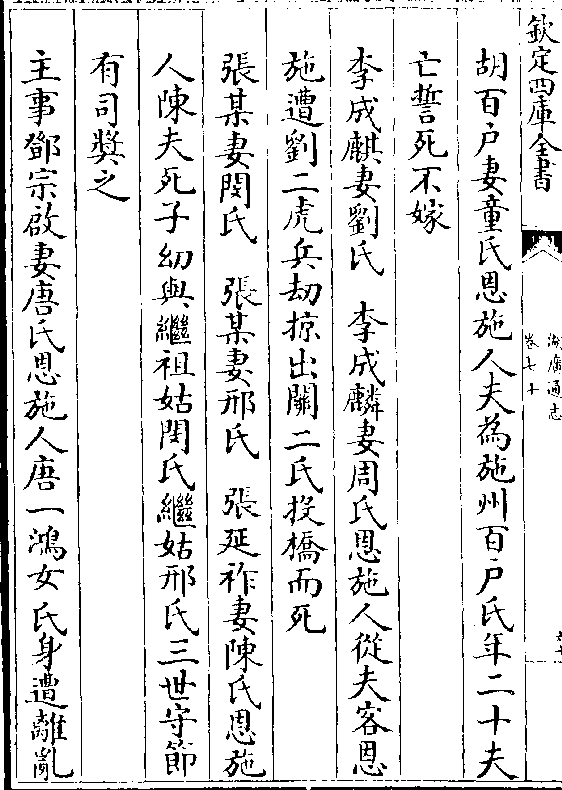 欽定四庫全書
湖廣通志
卷七十
胡百戶妻童氏恩施人夫為施州百戶氏年二十夫
亡誓死不嫁
李成麒妻劉氏　李成麟妻周氏恩施人從夫客恩
施遭劉二虎兵劫掠出關二氏投橋而死
張某妻閔氏　張某妻邢氏　張延祚妻陳氏恩施
人陳夫死子幼與繼祖姑閔氏繼姑邢氏三世守節
有司獎之
主事鄧宗啟妻唐氏恩施人唐一鴻女氏身遭離亂